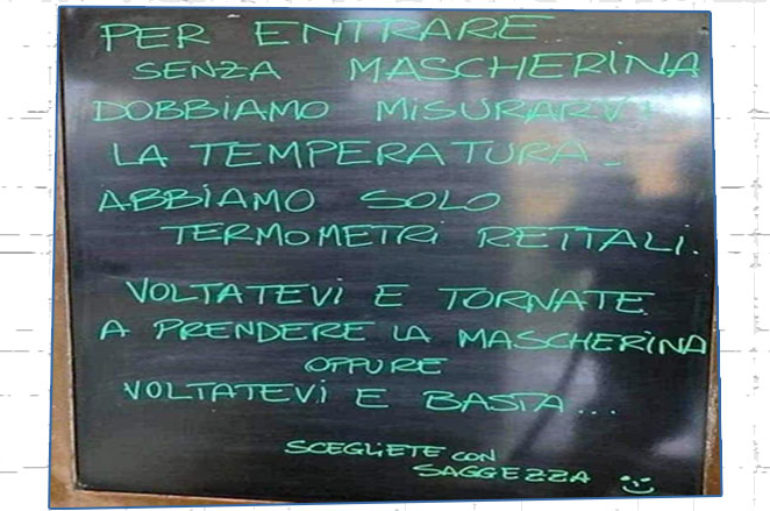 PER ENTRARE
SENZA MASCHERINA
DOBBIAMO MISURARVI
LA TEMPERATURA.
ABBIAMO SOLO
TERMOMETRI RETTALI.
VOLTATEVI E TORNATE
A PRENDERE LA MASCHERINA
OPPURE
VOLTATEVI E BASTA...
SCEGLIETE CON
SAGGEZZA